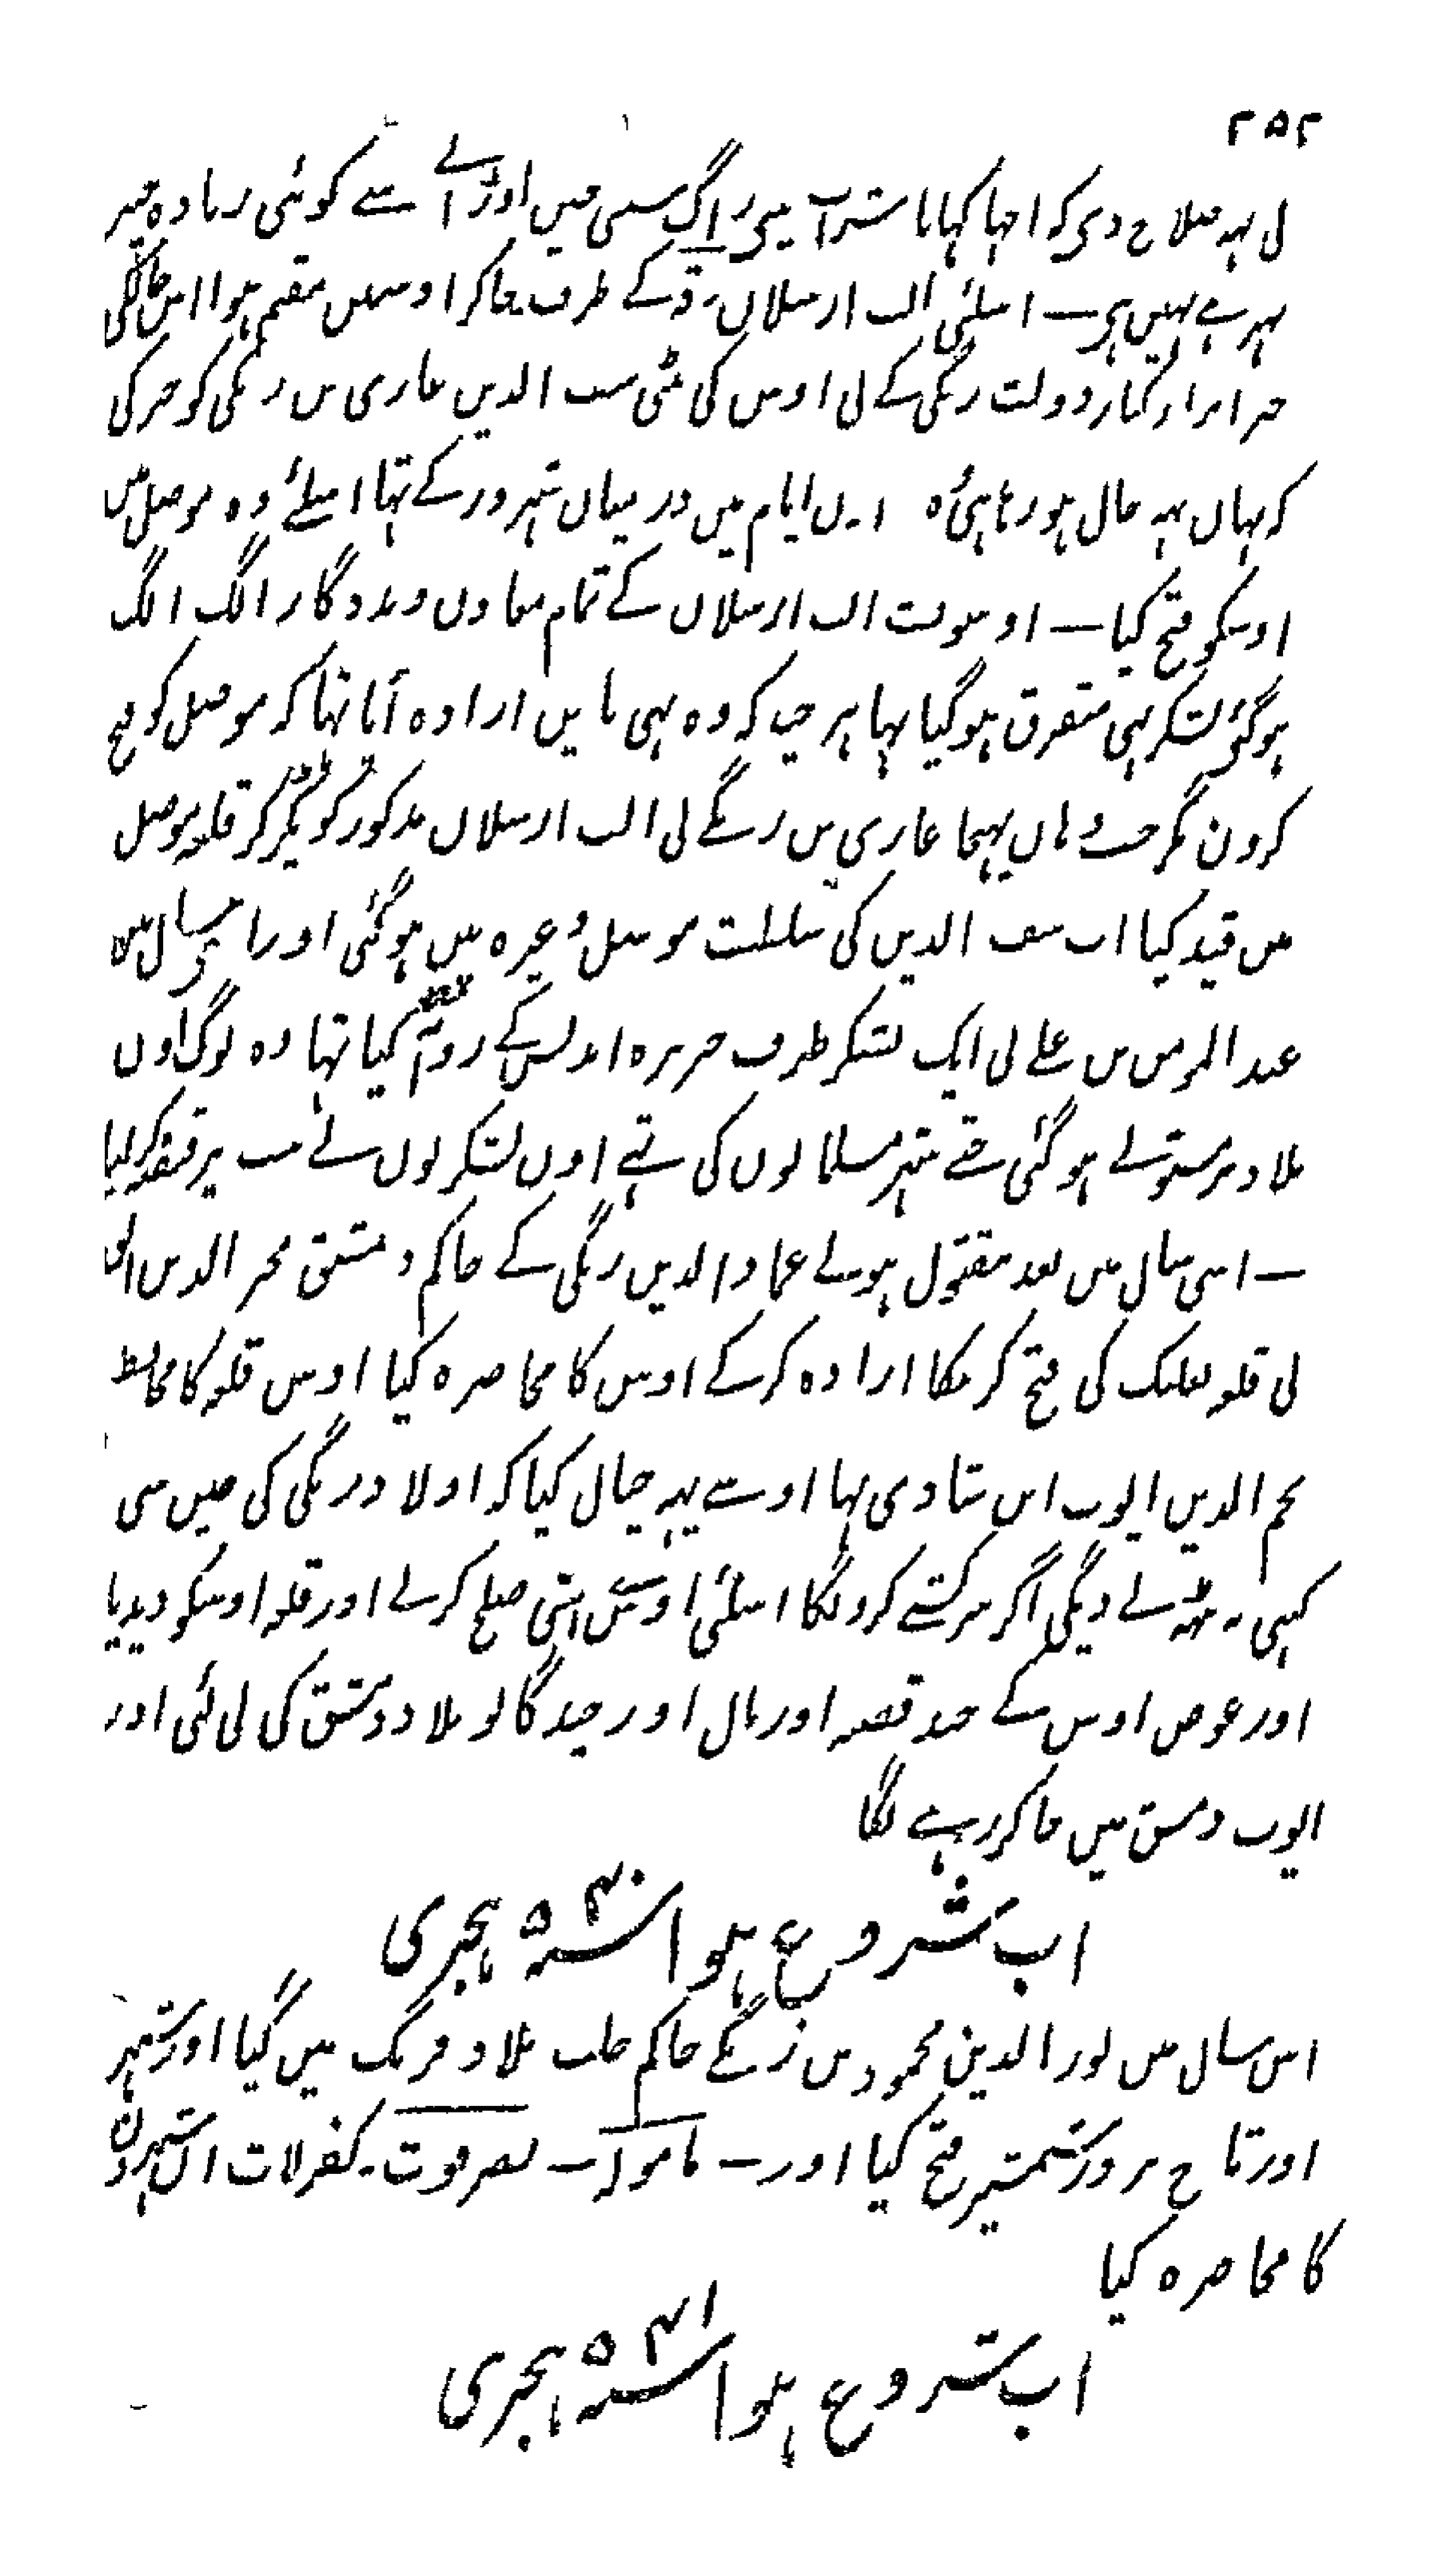 ۲۵۲
نی یہہ صلاح دی کہ اچہا کہانا شراب پینی راگ سننی میں اوڑانے سے کوئی زیادہ چیز
بہرہے نہیں ہی — اسلئی الب ارسلان رقہ کے طرف جاکر اوسمیں مقیم ہوا اس حال کی
خبر امرا و کبار دولت زنگی کے نی اوس کی بیٹی سیف الدین غازی بن زنگی کو خبر کی
کہ یہاں یہہ حال ہو رہا ہئ ہ ان ایام میں درمیان شہرزور کے تہا اسلئے وہ موصل میں
اوسکو فتح کیا — اوسوقت الب ارسلان کے تمام معاون و مددگار الگ الگ
ہوگئی لشکر بہی متفرق ہوگیا تہا ہر چند کہ وہ بہی باین ارادہ آتا تہا کہ موصل کو فتح
کرون مگر جب وہاں پہنچا غازی بن زنگے نی الب ارسلان مذکور کو پکڑ کر قلعہ موصل
میں قید کیا اب سیف الدین کی سلطنت موصل وغیرہ میں ہوگئی اور اسی سال میں
عبد المومن بن علے نی ایک لشکر طرف جزیرہ اندلس کے روانہ کیا تہا وہ لوگ اون
بلاد پر مستولے ہوگئی جتے شہر مسلمانوں کی تہے اون لشکریوں نے سب پر قبضہ کرلیا
— اسی سال میں بعد مقتول ہونے عماد الدین زنگی کے حاکم دمشق مجیر الدین ابق
نی قلعہ بعلبک کی فتح کرنیکا ارادہ کرکے اوس کا محاصرہ کیا اوس قلعہ کا محافظ
نجم الدین ایوب ابن شادی تہا اوسے یہہ خیال کیا کہ اولاد زنگی کی میں سی
کہی نہ دیگی اگر سرکشے کرونگا اسلئی اوسی اپنی صلح کرلے اور قلعہ اوسکو دیدیا
اور عوض اوس کے چند قصبہ اور مال اور چند گانو بلاد دمشق کی لی لئی اور
ایوب دمشق میں جاکر رہے لگا
اب شروع ہوا سنہ ۵۴۰ ہجری
اس سال میں نور الدین محمود بن زنگے حاکم حلب بلاد فرنگ میں گیا اور شہر
اور تاح بزور شمشیر فتح کیا اور — مامولہ — بصرفوت - کفرلاث ان شہرون
کا محاصرہ کیا
اب شروع ہوا سنہ ۵۴۱ ہجری